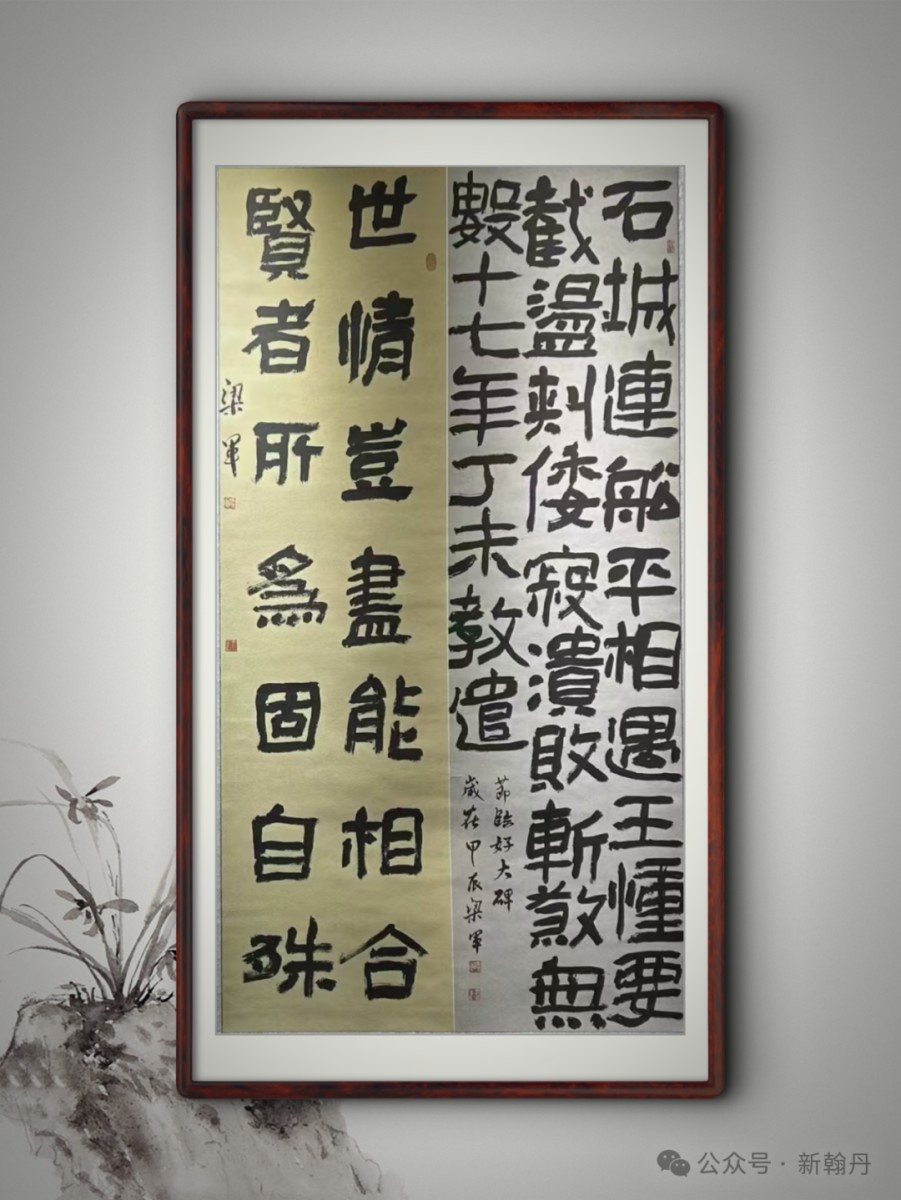 石城連船平相遇王幢要
截盪刺倭寇潰敗斬煞無
數十七年丁未教遣
節臨好大碑
歲在甲辰梁軍
世情豈盡能相合
賢者所爲固自殊
梁軍
公众号·新翰丹